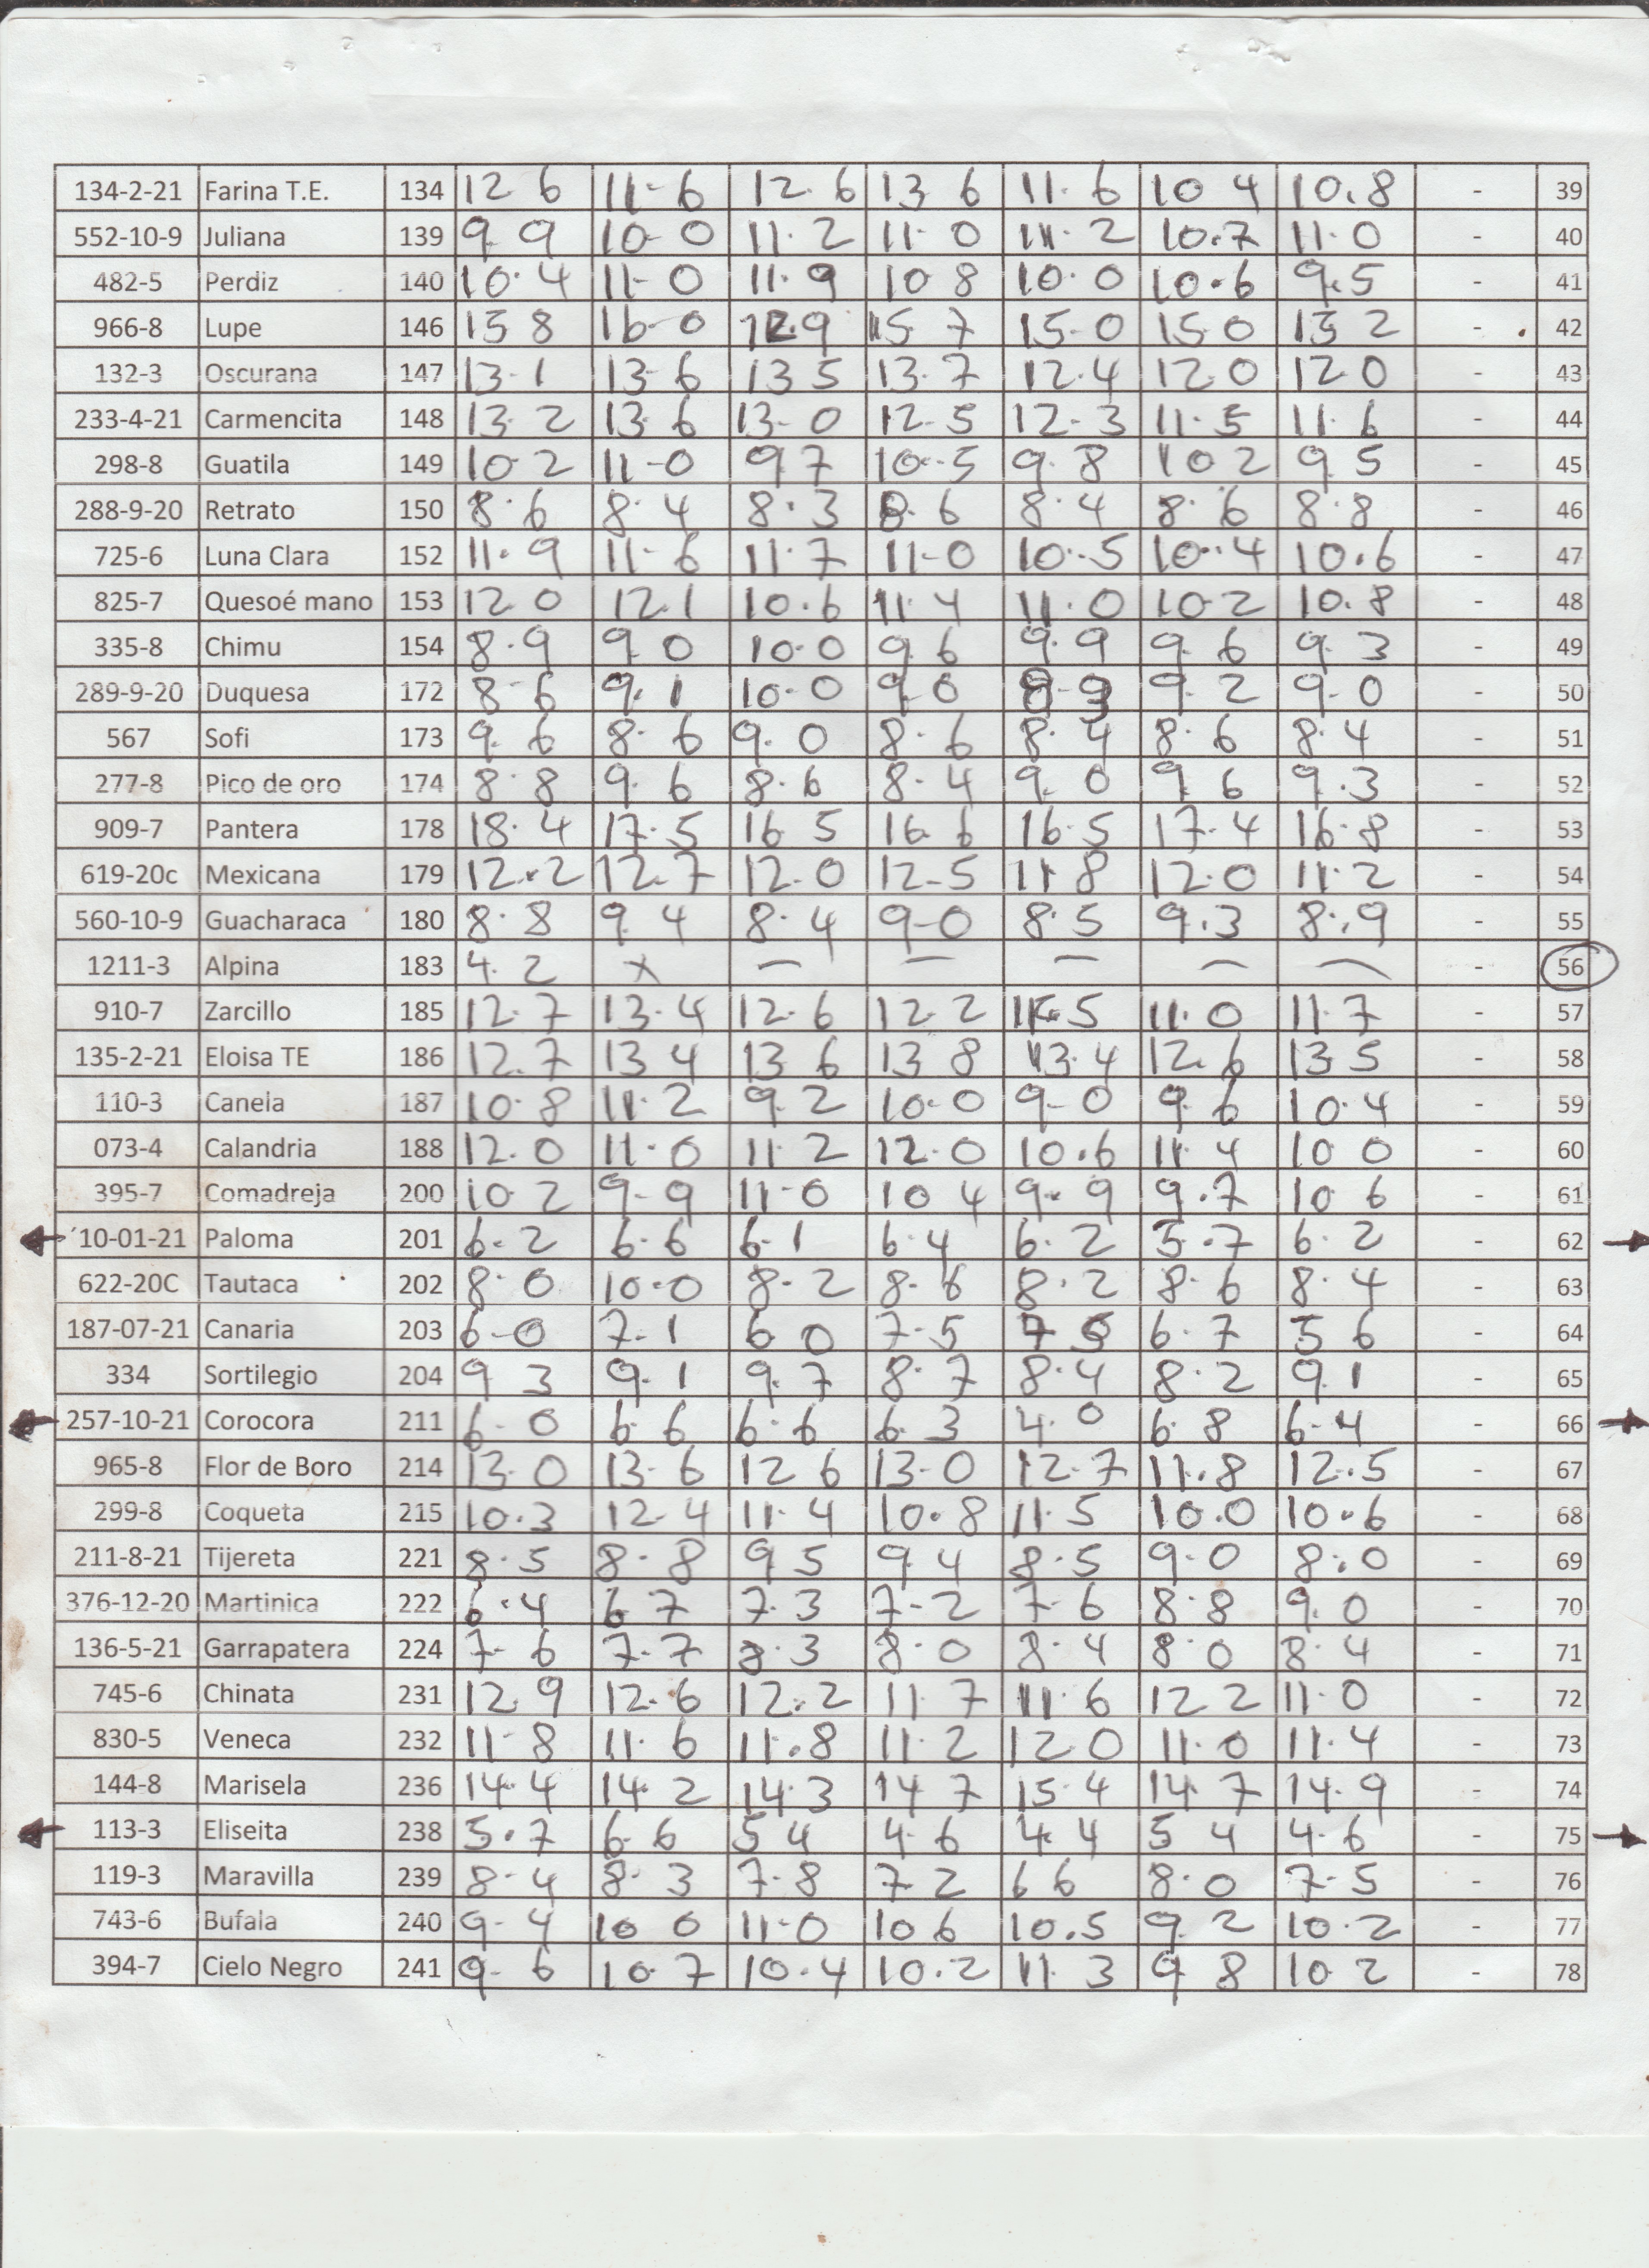 134-2-21 Farina T.E. 134 12 6 11-6 12.6 13 6 11.6 10 4 10.8 - 39
552-10-9 Juliana 139 9.9 10-0 11.2 11.0 11.2 10.7 11.0 - 40
482-5 Perdiz 140 10.4 11-0 11.9 10 8 10.0 10.6 9.5 - 41
966-8 Lupe 146 15 8 16-0 12.9 15.7 15-0 15 0 15 2 - 42
132-3 Oscurana 147 13-1 13-6 13 5 13.7 12.4 12.0 12 0 - 43
233-4-21 Carmencita 148 13.2 13.6 13-0 12-5 12-3 11.5 11.6 - 44
298-8 Guatila 149 10-2 11-0 9.7 10-5 9.8 10 2 9 5 - 45
288-9-20 Retrato 150 8.6 8.4 8.3 8.6 8.4 8.6 8.8 - 46
725-6 Luna Clara 152 11.9 11-6 11.7 11-0 10-5 10.4 10.6 - 47
825-7 Quesoé mano 153 12 0 12.1 10.6 11.4 11.0 10-2 10.8 - 48
335-8 Chimu 154 8.9 9.0 10.0 9.6 9.9 9.6 9.3 - 49
289-9-20 Duquesa 172 8-6 9.1 10-0 9.0 9.2 9.0 - 50
567 Sofi 173 9.6 8.6 9.0 8.6 8.4 8.6 8.4 - 51
277-8 Pico de oro 174 8.8 9.6 8.6 8.4 9.0 9.6 9.3 - 52
909-7 Pantera 178 18.4 17.5 16.5 16.6 16.5 17.4 16.8 - 53
619-20c Mexicana 179 12.2 12.7 12.0 12-5 11.8 12.0 11.2 - 54
560-10-9 Guacharaca 180 8.8 9.4 8.4 9-0 8.5 9.3 8.9 - 55
1211-3 Alpina 183 4.2 x — — — — — - 56
910-7 Zarcillo 185 12.7 13.4 12.6 12.2 11.5 11.0 11.7 - 57
135-2-21 Eloisa TE 186 12.7 13 4 13 6 13 8 13.4 12.6 13 5 - 58
110-3 Canela 187 10.8 11.2 9.2 10-0 9-0 9.6 10.4 - 59
073-4 Calandria 188 12.0 11.0 11.2 12.0 10.6 11.4 10 0 - 60
395-7 Comadreja 200 10.2 9-9 11-0 10 4 9.9 9.7 10 6 - 61
10-01-21 Paloma 201 6.2 6.6 6.1 6.4 6.2 5.7 6.2 62
622-20C Tautaca 202 8.0 10.0 8.2 8.6 8.2 8.6 8.4 - 63
187-07-21 Canaria 203 6-0 7.1 6.0 7-5 6.7 5 6 - 64
334 Sortilegio 204 9 3 9.1 9.7 8.7 8.4 8.2 9.1 - 65
257-10-21 Corocora 211 6-0 6.6 6.6 6.3 4.0 6.8 6.4 - 66
965-8 Flor de Boro 214 13.0 13-6 12 6 13-0 12.7 11.8 12.5 - 67
299-8 Coqueta 215 10.3 12-4 11.4 10.8 11.5 10.0 10.6 - 68
211-8-21 Tijereta 221 8.5 8.8 9 5 9.4 8.5 9.0 8.0 - 69
376-12-20 Martinica 222 6.4 6.7 7.3 7-2 7-6 8.8 9.0 - 70
136-5-21 Garrapatera 224 7-6 7-7 8.3 8.0 8.4 8.0 8.4 - 71
745-6 Chinata 231 12 9 12.6 12.2 11.7 11.6 12 2 11.0 - 72
830-5 Veneca 232 11-8 11.6 11.8 11.2 12 0 11.0 11.4 - 73
144-8 Marisela 236 14.4 14.2 14.3 14 7 15.4 14.7 14.9 - 74
113-3 Eliseita 238 5.7 6.6 5 4 4.6 4.4 5 4 4.6 - 75
119-3 Maravilla 239 8-4 8.3 7-8 7.2 6 6 8.0 7.5 - 76
743-6 Bufala 240 9-4 10 0 11-0 10 6 10.5 9.2 10.2 - 77
394-7 Cielo Negro 241 9-6 10.7 10.4 10.2 11.3 9 8 10 2 - 78